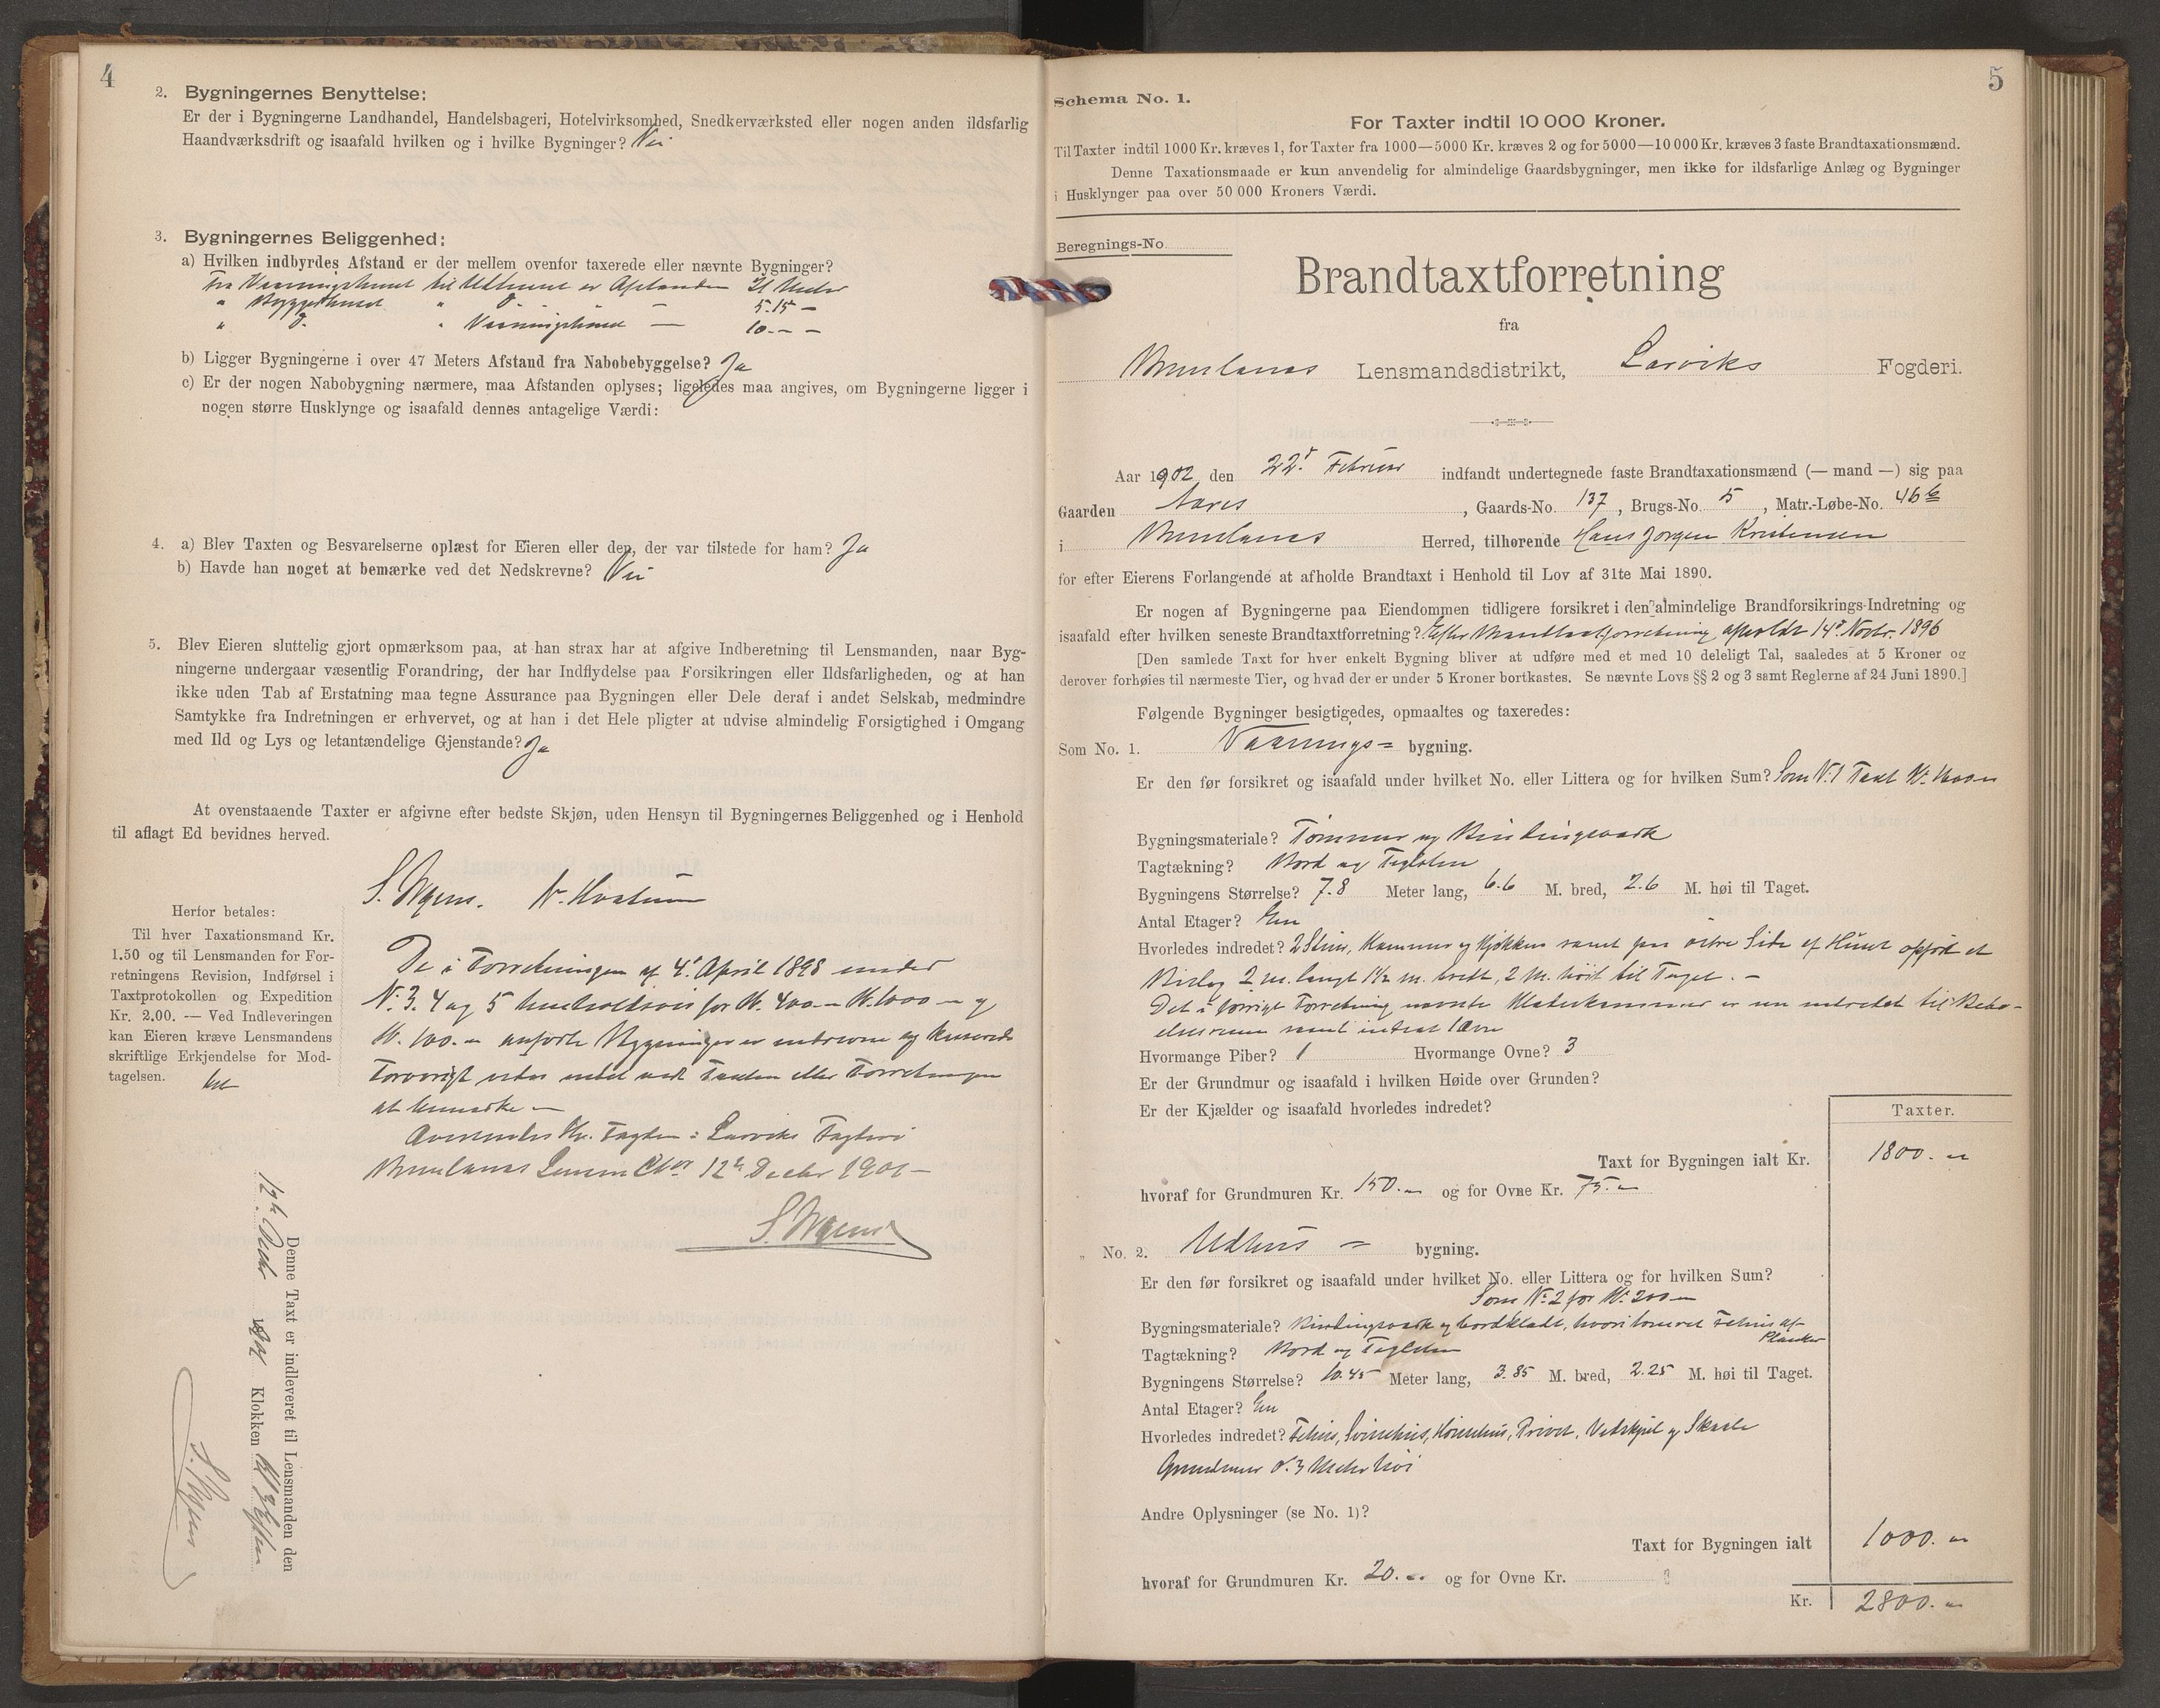 4
2. Bygningernes Benyttelse:
Er der i Bygningerne Landhandel, Handelsbageri, Hotelvirksomhed, Snedkerværksted eller nogen anden ildsfarlig
Haandværksdrift og isaafald hvilken og i hvilke Bygninger? Nei
3. Bygningernes Beliggenhed:
a) Hvilken indbyrdes Afstand er der mellem ovenfor taxerede eller nævnte Bygninger?
Fra Vaaningshuset til Udhuset er Afstanden 21 Meter
" Bryggerhuset " Do 5.15 —
" Do " Vaaningshuset — 10 — —
b) Ligger Bygningerne i over 47 Meters Afstand fra Nabobebyggelse? Ja
c) Er der nogen Nabobygning nærmere, maa Afstanden oplyses; ligeledes maa angives, om Bygningerne ligger i
nogen større Husklynge og isaafald dennes antagelige Værdi:
4. a) Blev Taxten og Besvarelserne oplæst for Eieren eller den, der var tilstede for ham? Ja
b) Havde han noget at bemærke ved det Nedskrevne? Nei
5. Blev Eieren sluttelig gjort opmærksom paa, at han strax har at afgive Indberetning til Lensmanden, naar Byg-
ningerne undergaar væsentlig Forandring, der har Indflydelse paa Forsikringen eller Ildsfarligheden, og at han
ikke uden Tab af Erstatning maa tegne Assurance paa Bygningen eller Dele deraf i andet Selskab, medmindre
Samtykke fra Indretningen er erhvervet, og at han i det Hele pligter at udvise almindelig Forsigtighed i Omgang
med Ild og Lys og letantændelige Gjenstande? Ja
At ovenstaaende Taxter er afgivne efter bedste Skjøn, uden Hensyn til Bygningernes Beliggenhed og i Henhold
til aflagt Ed bevidnes herved.
Herfor betales:
Til hver Taxationsmand Kr.
1.50 og til Lensmanden for For-
retningens Revision, Indførsel i
Taxtprotokollen og Expedition
Kr. 2.00. — Ved Indleveringen
kan Eieren kræve Lensmandens
skriftlige Erkjendelse for Mod-
tagelsen.
De i Forretningen af 4de April 1898 under
No 3. 4 og 5 henholdsvis for Kr. 400 — Kr. 1000 — og
Kr. 100. — anførte Bygninger er nedrevne og
Forøvrigt vides intet ved Taxten eller Forretningen
at bemærke —
Tagsten: Larviks Tagteri
Brunlanes 12te Decbr 1901 —
Denne Taxt er indleveret til Lensmanden den
12te Decbr 1901 Klokken
5
Schema No. 1.
For Taxter indtil 10 000 Kroner.
Til Taxter indtil 1000 Kr. kræves 1, for Taxter fra 1000—5000 Kr. kræves 2 og for 5000—10 000 Kr. kræves 3 faste Brandtaxationsmænd.
Denne Taxationsmaade er kun anvendelig for almindelige Gaardsbygninger, men ikke for ildsfarlige Anlæg og Bygninger
i Husklynger paa over 50 000 Kroners Værdi.
Beregnings-No
Brandtaxtforretning
fra
Brunlanes Lensmandsdistrikt, Larviks Fogderi.
Aar 1902 den 22de Februar indfandt undertegnede faste Brandtaxationsmænd (— mand —) sig paa
Gaarden , Gaards-No. 137, Brugs-No. 5, Matr.-Løbe-No. 46
i Brunlanes Herred, tilhørende Hans Jørgen Kristensen
for efter Eierens Forlangende at afholde Brandtaxt i Henhold til Lov af 31te Mai 1890.
Er nogen af Bygningerne paa Eiendommen tidligere forsikret i den almindelige Brandforsikrings-Indretning og
isaafald efter hvilken seneste Brandtaxtforretning? Efter Brandtaxtforretning afholdt 14de Novbr. 1896
[Den samlede Taxt for hver enkelt Bygning bliver at udføre med et med 10 deleligt Tal, saaledes at 5 Kroner og
derover forhøies til nærmeste Tier, og hvad der er under 5 Kroner bortkastes. Se nævnte Lovs §§ 2 og 3 samt Reglerne af 24 Juni 1890.]
Følgende Bygninger besigtigedes, opmaaltes og taxeredes:
Som No. 1. Vaanings= bygning.
Er den før forsikret og isaafald under hvilket No. eller Littera og for hvilken Sum? Som No 1 Taxt Kr.
Bygningsmateriale? Tømmer og Bindingsværk
Tagtækning? Bord og Teglsten
Bygningens Størrelse? 7.8 Meter lang, 6.6 M. bred, 2.6 M. høi til Taget.
Antal Etager? Een
Hvorledes indredet? 2 Stuer, Kammer og Kjøkken samt paa østre Side af Huset opført et
Bislag 2 m. langt 1½ m. bredt, 2 m. høit til Taget. —
Det i forrige Forretning nævnte er nu indredet til Bebo-
elsesrum samt indsat 1 Ovn
Hvormange Piber? 1 Hvormange Ovne? 3
Er der Grundmur og isaafald i hvilken Høide over Grunden?
Er der Kjælder og isaafald hvorledes indredet?
Taxter.
Taxt for Bygningen ialt Kr. 1800. —
hvoraf for Grundmuren Kr. 150. — og for Ovne Kr. 75. —
" No. 2. Udhus = bygning.
Er den før forsikret og isaafald under hvilket No. eller Littera og for hvilken Sum?
Som No 2 for Kr. 200 —
Bygningsmateriale? Bindingsværk og bordklædt, hvori tømret Fehus af
Planker
Tagtækning? Bord og Teglsten
Bygningens Størrelse? 10.45 Meter lang, 3.85 M. bred, 2.25 M. høi til Taget.
Antal Etager? Een
Hvorledes indredet? Fehus, Svinehus, Hønsehus, Privet, Vedskjul og Skaale
Grundmur 0.3 Meter høi
Andre Oplysninger (se No. 1)?
Taxt for Bygningen ialt 1000. —
hvoraf for Grundmuren Kr. 20. — og for Ovne Kr.
Kr. 2800. —